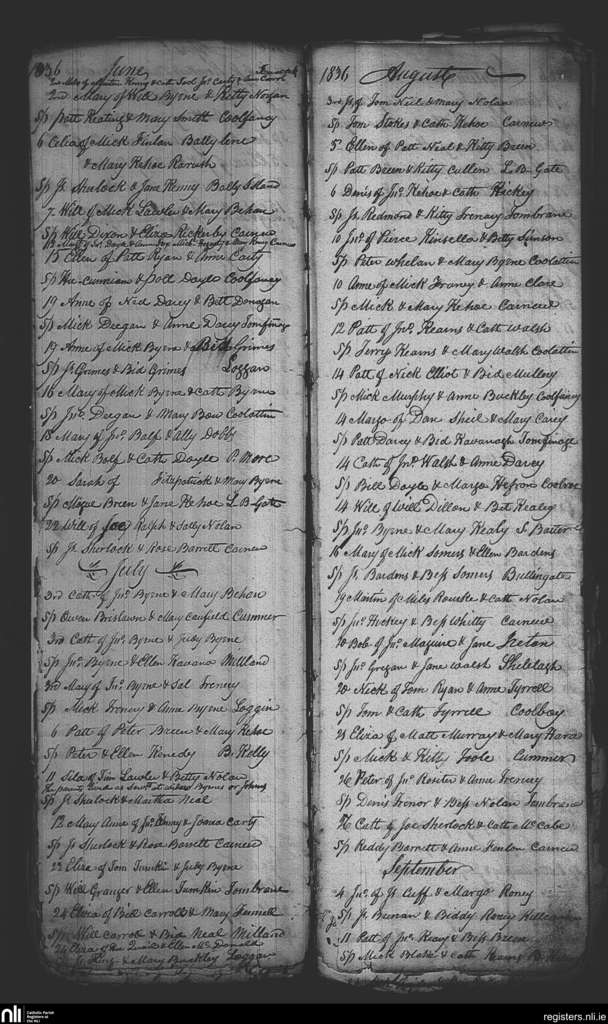 1836 June
2nd Mary of Will Byrne & Kitty Nolan
Sp Patt Keating & Mary Smith Coolfancy
6 Celia of Mick Finlan Ballyline
& Mary Kehoe Rarush
Sp Js. Sherlock & Jane Kenny Bally Island
7 Will of Mick Lawler & Mary Behan
Sp Will Dixon & Eliza Rickerby Carnew
15 Ellen of Patt Ryan & Anne Carty
Sp & Doll Doyle Coolfancy
19 Anne of Ned Darcy & Bett Donegan
Sp Mick Deegan & Anne Darcy Tomfinoge
19 Anne of Mick Byrne & Bid Grimes
Sp Js Grimes & Bid Grimes Loggan
16 Mary of Mick Byrne & Cath Byrne
Sp Jno. Deegan & Mary Bow Coolattin
18 Mary of Jno. Balf & Ally Dobbs
Sp Mick Balf & Cath Doyle P. More
20 Sarah of Fitzpatrick & Mary Byrne
Sp Mogue Breen & Jane Kehoe L B-Gate
22 Will of Joe Ralph & Sally Nolan
Sp Js. Sherlock & Rose Barrett Carnew
July
3rd Cath of Jno. Byrne & Mary Behan
Sp Owen Brislawn & Mary Canfield Cummer
3rd Cath of Jno. Byrne & Judy Byrne
Sp Jno. Byrne & Ellen Kavana Milland
3rd Mary of Jno. Byrne & Sal Freney
Sp Mick Freney & Anne Byrne Loggin
6 Patt of Peter Breen & Mary Kehoe
Sp Peter & Ellen Kenedy B. Kelly
11 Sila of Tim Lawler & Betty Nolan
Sp Js Sherlock & Martha Neal
12 Mary Anne of Jno. Kenny & Joana Carty
Sp Js Sherlock & Rose Barrett Carnew
22 Eliza of Tom Tumkin & Judy Byrne
Sp Will Granger & Ellen Tumkin Tombrane
24 Eliza of Bill Carroll & Mary Fennell
Sp Will Carroll & Bid Neal Milland
& Mary Buckley Loggan
1836 August
3rd Js. of Tom Neil & Mary Nolan
Sp Tom Stokes & Cath Kehoe Carnew
5th Ellen of Patt Neal & Kitty Breen
Sp Patt Breen & Kitty Cullen L. B-Gate
6 Denis of Jno. Kehoe & Cath Hickey
Sp Js. Redmond & Kitty Freney Tombrane
10 Jno. of Pierce Kinsella & Betty Simson
Sp Peter Whelan & Mary Byrne Coolattin
10 Anne of Mick Franey & Anne Clare
Sp Mick & Mary Kehoe Carnew
12 Patt of Jno. Kearns & Cath Walsh
Sp Terry Kearns & Mary Walsh Coolattin
14 Patt of Nick Elliot & Bid Mulloy
Sp Mick Murphy & Anne Buckley Coolfancy
14 Margo of Dan Sheil & Mary Carey
Sp Patt Darcy & Bid Kavanagh Tomfinoge
14 Cath of Jno. Walsh & Anne Darcy
Sp Bill Doyle & Margo Hefron Coolroe
14 Will of Will Dillon & Bet Healy
Sp Jno. Byrne & Mary Healy
16 Mary of Mick Somers & Ellen Bardens
Sp Js. Bardens & Bess Somers Bullingate
19 Martin of Miles Rourke & Cath Nolan
Sp Js. Hickey & Bess Whitty Carnew
20 Bob of Jno. Maguire & Jane Ireton
Sp Jno. Gregan & Jane Walsh Shilelagh
20 Nick of Tom Ryan & Anne Tyrrell
Sp Tom & Cath Tyrrell Coolboy
21 Eliza of Matt Murray & Mary Hara
Sp Mick & Kitty Toole Cummer
26 Peter of Jno. Rositer & Anne Freney
Sp Denis Tronor & Bess Nolan Tombrane
26 Cath of Joe Sherlock & Cath McCabe
Sp Reddy Barrett & Anne Kenlon Carnew
September
4 Jno. of Js. Cuff & Margo Roney
Sp Js. Brenan & Biddy Roney
11 Patt of Jno. Keary & Bess Breen
Sp Mick Blake & Cath Kearns
nli Catholic Parish Registers at the NLI
registers.nli.ie